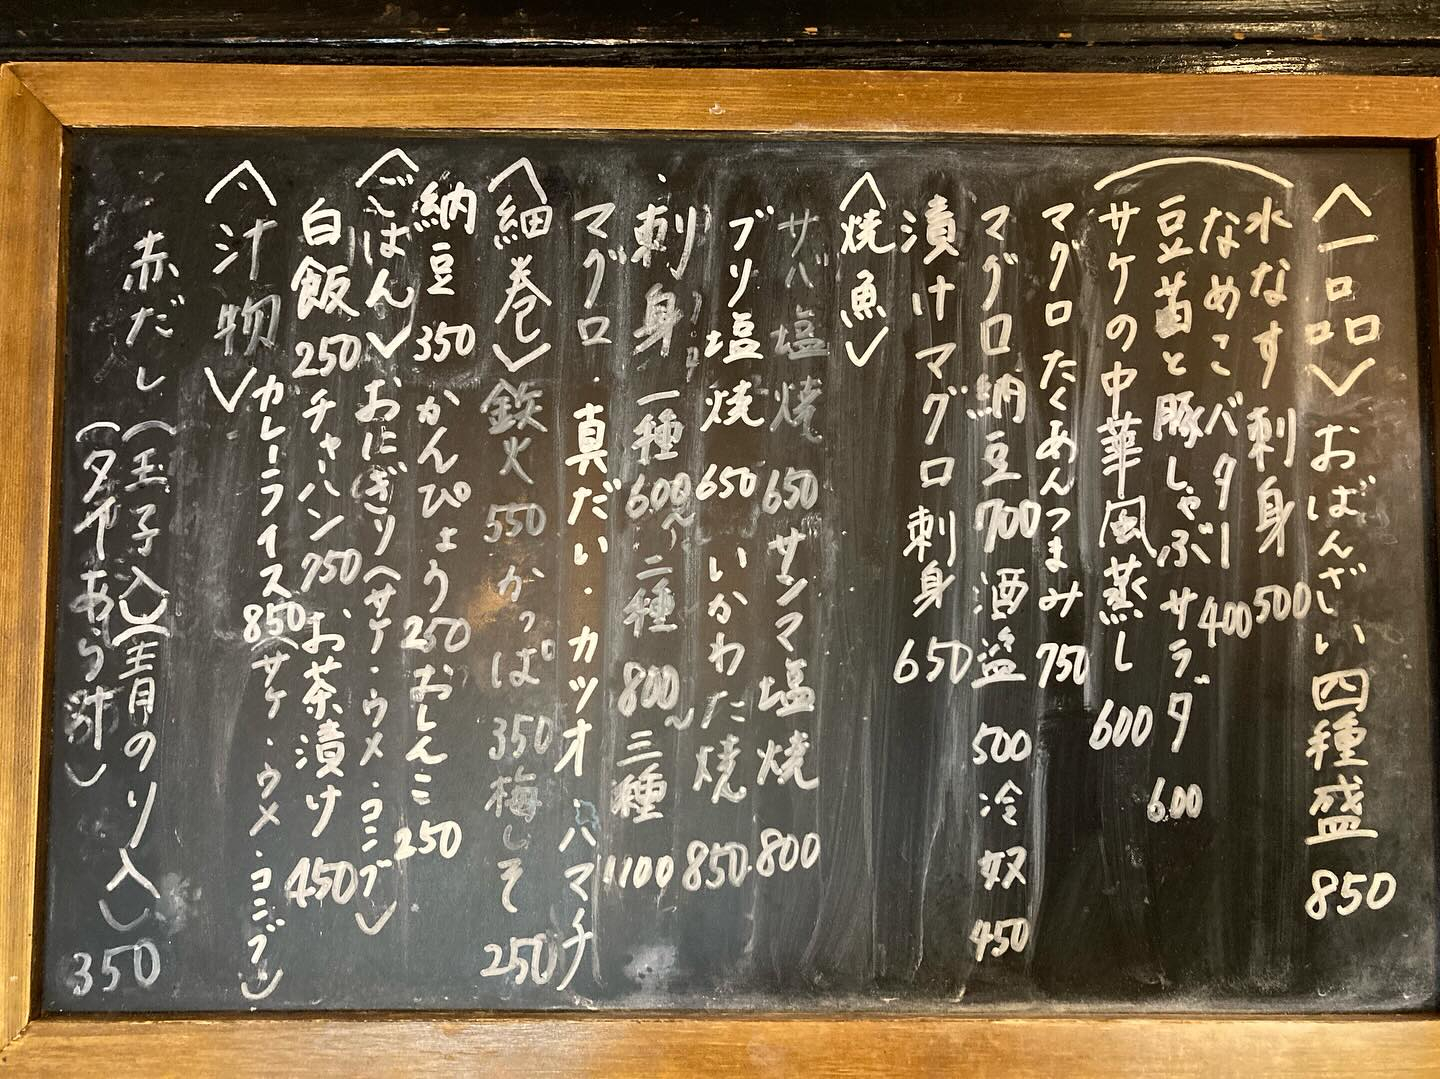 〈一品〉おばんざい四種盛 850
水なす刺身 500
なめこバター 400
豆苗と豚しゃぶサラダ 600
サケの中華風蒸し 600
マグロたくあんつまみ 750
マグロ納豆 700 酒盗 500 冷奴 450
漬けマグロ刺身 650
〈焼魚〉
サバ塩焼 650 サンマ塩焼 800
ブリ塩焼 650 いかわた焼 850
刺身 一種 600〜 二種 800〜 三種 1100
マグロ・真だい・カツオ・ハマチ
〈細巻〉鉄火 550 かっぱ 350 梅しそ 250
納豆 350 かんぴょう 250 おしんこ 250
〈ごはん〉おにぎり(サケ・ウメ・コンブ)
白飯 250 チャーハン 750 お茶漬け 450
カレーライス 850 (サケ・ウメ・コンブ)
〈汁物〉
赤だし(玉子入)(青のり入)
(タイあら汁) 350